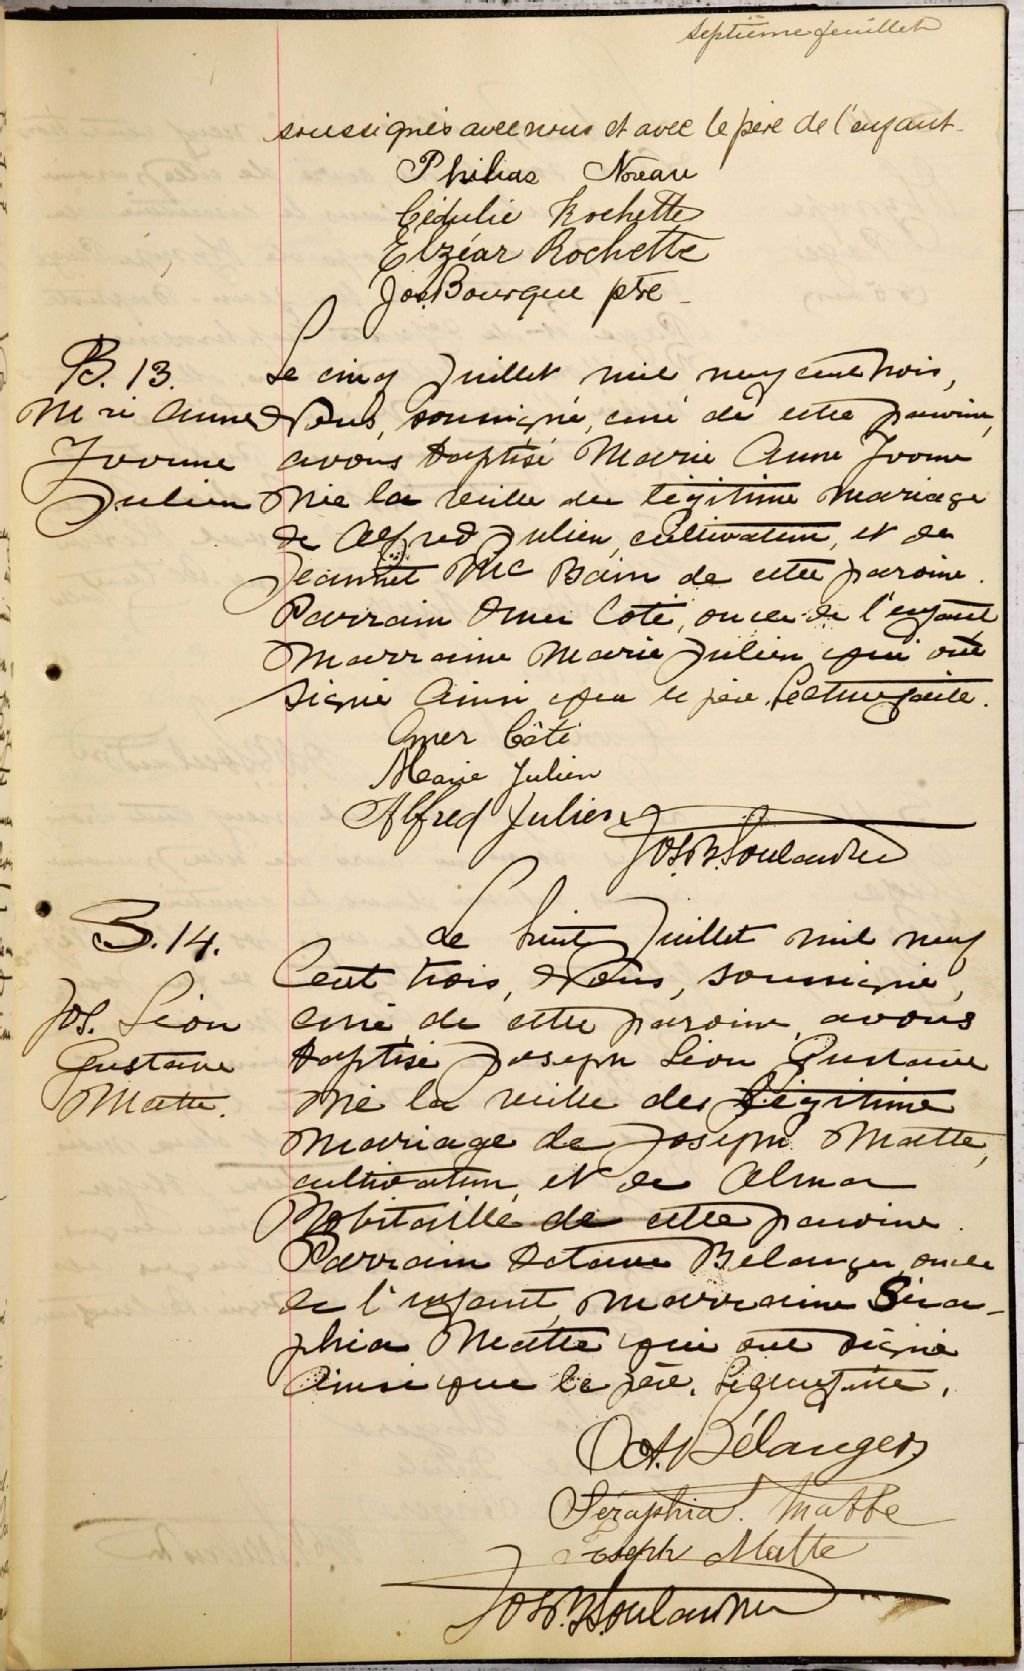 septième feuillet
soussignés avec nous et avec le père de l'enfant.
Philias Noreau
Cédulie Rochette
Elzéar Rochette
Jos. Bourque ptre
B. 13.
M ri Anne
Yvonne
Julien
Le cinq Juillet mil neuf cent trois,
Nous, soussigné, curé de cette paroisse,
avons baptisé Marie Anne Yvonne
née la veille du légitime mariage
de Alfred Julien, cultivateur, et de
Jeannet Mc Bain de cette paroisse.
Parrain Omer Coté, oncle de l'enfant
Marraine Marie Julien qui ont
signé ainsi que le père. Lecture faite.
Omer Côté
Marie Julien
Alfred Julien
Jos. B. Soulard
B. 14.
Jos. Léon
Gustave
Matte.
Le huit Juillet mil neuf
cent trois, Nous, soussigné,
curé de cette paroisse, avons
baptisé Joseph Léon Gustave
né la veille du légitime
mariage de Joseph Matte,
cultivateur et de Alma
Robitaille de cette paroisse.
Parrain Octave Bélanger, oncle
de l'enfant, marraine Séra-
phia Matte qui ont signé
ainsi que le père. Lecture faite.
Oct. Bélanger
Séraphia. Matte
Joseph Matte